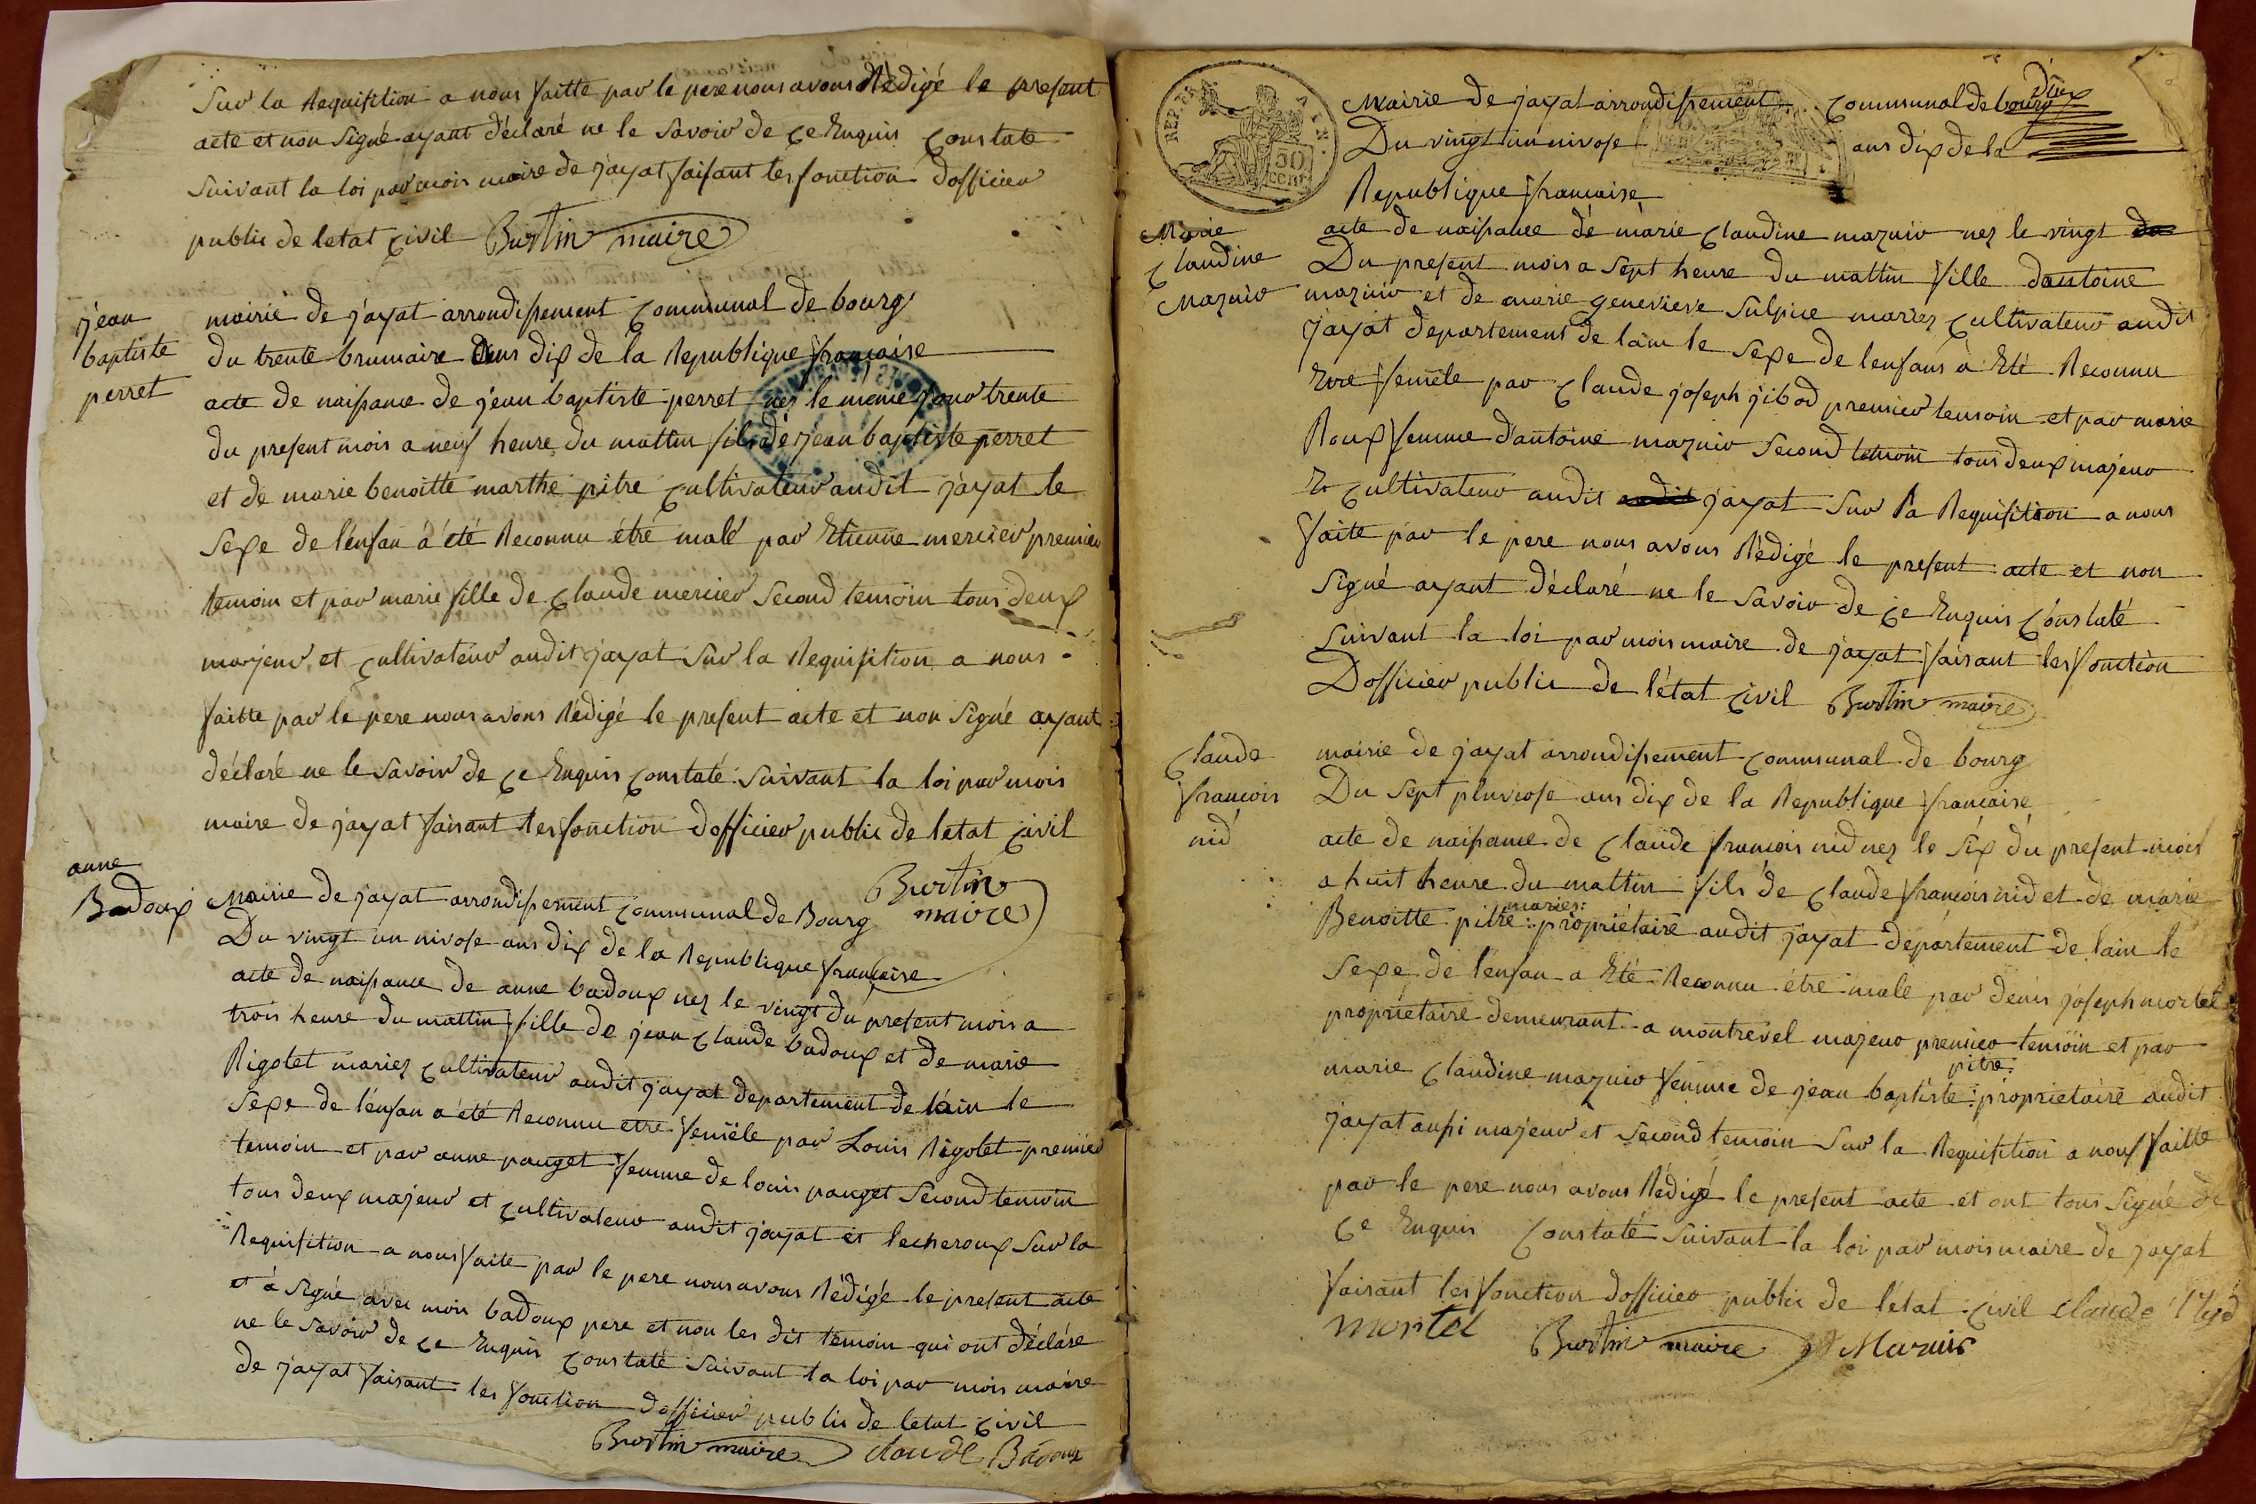 Sur la Requisition a nous faitte par le pere nous avons Rédigé le present
acte et non Signé ayant déclaré ne le Savoir de Ce Enquis Constate
Suivant la loi par mois maire de jayat faisant les fonction dofficier
public de letat Civil Burtin maire
jean
baptiste
perret
mairie de jayat arrondissement Communal de bourg
du trente brumaire ans dix de la Republique francaise
acte de naissance de jean baptiste perret nez le même jour trente
du present mois a neuf heure du mattin fils de jean baptiste perret
et de marie benoitte marthe pitre Cultivateur audit jayat le
Sexe de lenfan a été Reconnu être malé par Etienne mercier premier
temoin et par marie fille de Claude mercier Second temoin tous deux
majeur et Cultivateur audit jayat Sur la Requisition a nous
faitte par le pere nous avons Rédigé le present acte et non Signé ayant
déclaré ne le Savoir de Ce Enquis Constaté Suivant la loi par mois
maire de jayat faisant les fonction dofficier public de letat Civil
Burtin
maire
anne
Badoux
Mairie de jayat arrondissement Communal de Bourg
Du vingt un nivose ans dix de la Republique francaise
acte de naissance de anne badoux nez le vingt du present mois a
trois heure du mattin fille de jean Claude badoux et de marie
Rigolet mariez Cultivateur audit jayat departement de lain le
Sexe de lenfan a été Reconnu etre femèle par Louis Rigolet premier
temoin et par anne pauget femme de louis pauget Second temoin
tous deux majeur et Cultivateur audit jayat et lecheroux Sur la
Requisition a nous faite par le pere nous avons Rédigé le present acte
et à Signé avec mois badoux pere et non les dit temoin qui ont déclare
ne le Savoir de Ce Enquis Constaté Suivant la loi par mois maire
de jayat faisant les fonction dofficier public de letat Civil
Burtin maire Claude Badoux
REP. FRA
50
cent
Mairie de jayat arrondissement Communal de bourg
Du vingt un nivose ans dix de la
Republique francaise
Marie
Claudine
Mazuir
acte de naissance de marie Claudine mazuir nez le vingt
Du present mois a Sept heure du mattin fille dantoine
mazuir et de marie genevieve Sulpice mariez Cultivateur audit
jayat departement de lain le Sexe de lenfans à Eté Reconnu
Etre femèle par Claude joseph jibod premier temoin et par marie
Roux femme dantoine mazuir Second temoin tous deux majeur
Et Cultivateur audit audit jayat Sur la Requisition a nous
faite par le pere nous avons Rédigé le present acte et non
Signé ayant déclaré ne le Savoir de Ce Enquis Constaté
Suivant la loi par mois maire de jayat faisant les fonction
Dofficier public de létat Civil Burtin maire
Claude
francois
nid
mairie de jayat arrondissement Communal de bourg
Du Sept pluviose ans dix de la Republique francaise
acte de naissance de Claude francois nid nez le Six du present mois
a huit heure du mattin fils de Claude francois nid et de marie
mariez:
Benoitte pitre : propriétaire audit jayat departement de lain le
Sexe de lenfan a Eté Reconnu être male par denis joseph mortel
propriétaire demeurant a montrevel majeur premier temoin et par
pitre:
marie Claudine mazuir femme de jean baptiste : proprietaire audit
jayat aussi majeur et Second temoin Sur la Requisition a nous faitte
par le pere nous avons Rédigé le present acte et ont tous Signé de
Ce Enquis Constaté Suivant la loi par mois maire de jayat
faisant les fonction dofficier public de létat Civil Claude Nyd
mortel Burtin maire Mazuir